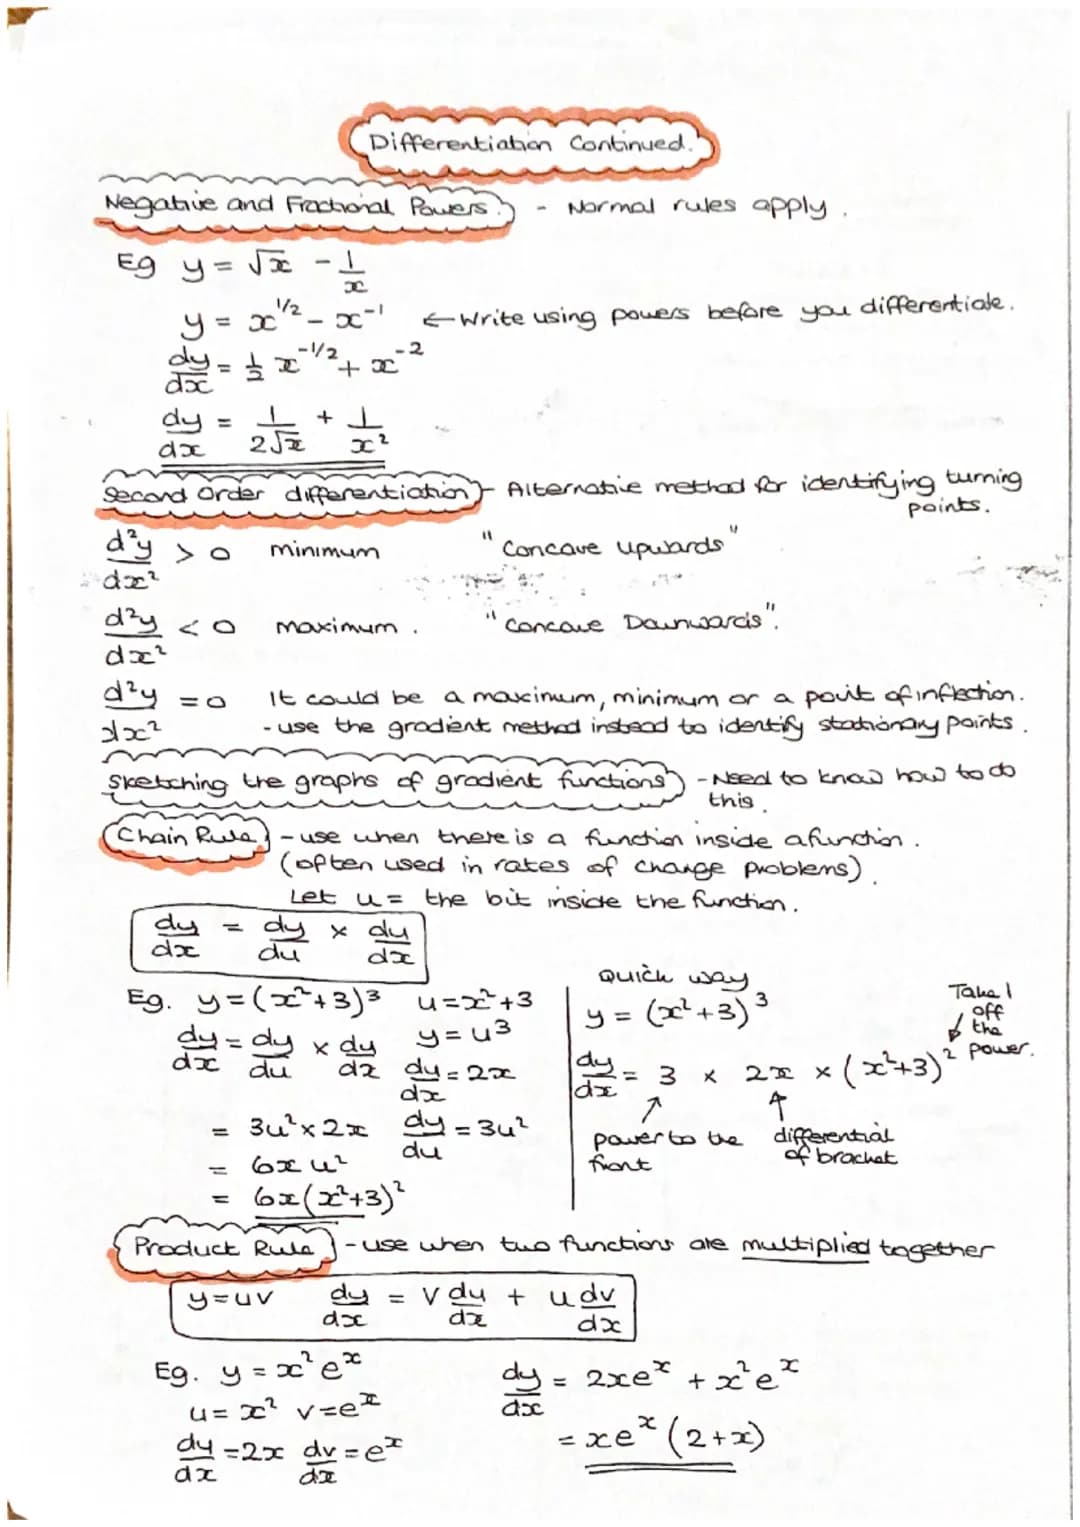 Differentiation Continued.
Negative and Fractional Powers. - Normal rules apply.
Eg y = √x - 1/x
y = x^1/2 - x^-1 ← Write using powers before you differentiate.
dy/dx = 1/2 x^-1/2 + x^-2
dy/dx = 1/(2√x) + 1/x²
Second Order differentiation - Alternative method for identifying turning
points.
d²y/dx² > 0 minimum "Concave upwards"
d²y/dx² < 0 maximum. "Concave Downwards".
d²y/dx² = 0 It could be a maximum, minimum or a point of inflection.
- use the gradient method instead to identify stationary points.
Sketching the graphs of gradient functions - Need to know how to do
this.
Chain Rule - use when there is a function inside a function.
(often used in rates of change problems).
Let u = the bit inside the function.
dy/dx = dy/du × du/dx
Eg. y = (x²+3)³ u = x²+3
y = u³
dy/dx = dy/du × du/dx
du/dx = 2x
= 3u² × 2x dy/du = 3u²
= 6x u²
= 6x(x²+3)²
Quick way
y = (x²+3)³
dy/dx = 3 × 2x × (x²+3)²
Take 1
off
the
power.
power to the
front
differential
of bracket
Product Rule - use when two functions are multiplied together
y=uv dy/dx = v du/dx + u dv/dx
Eg. y = x²e^x
u = x² v = e^x
du/dx = 2x dv/dx = e^x
dy/dx = 2xe^x + x²e^x
= xe^x (2+x)